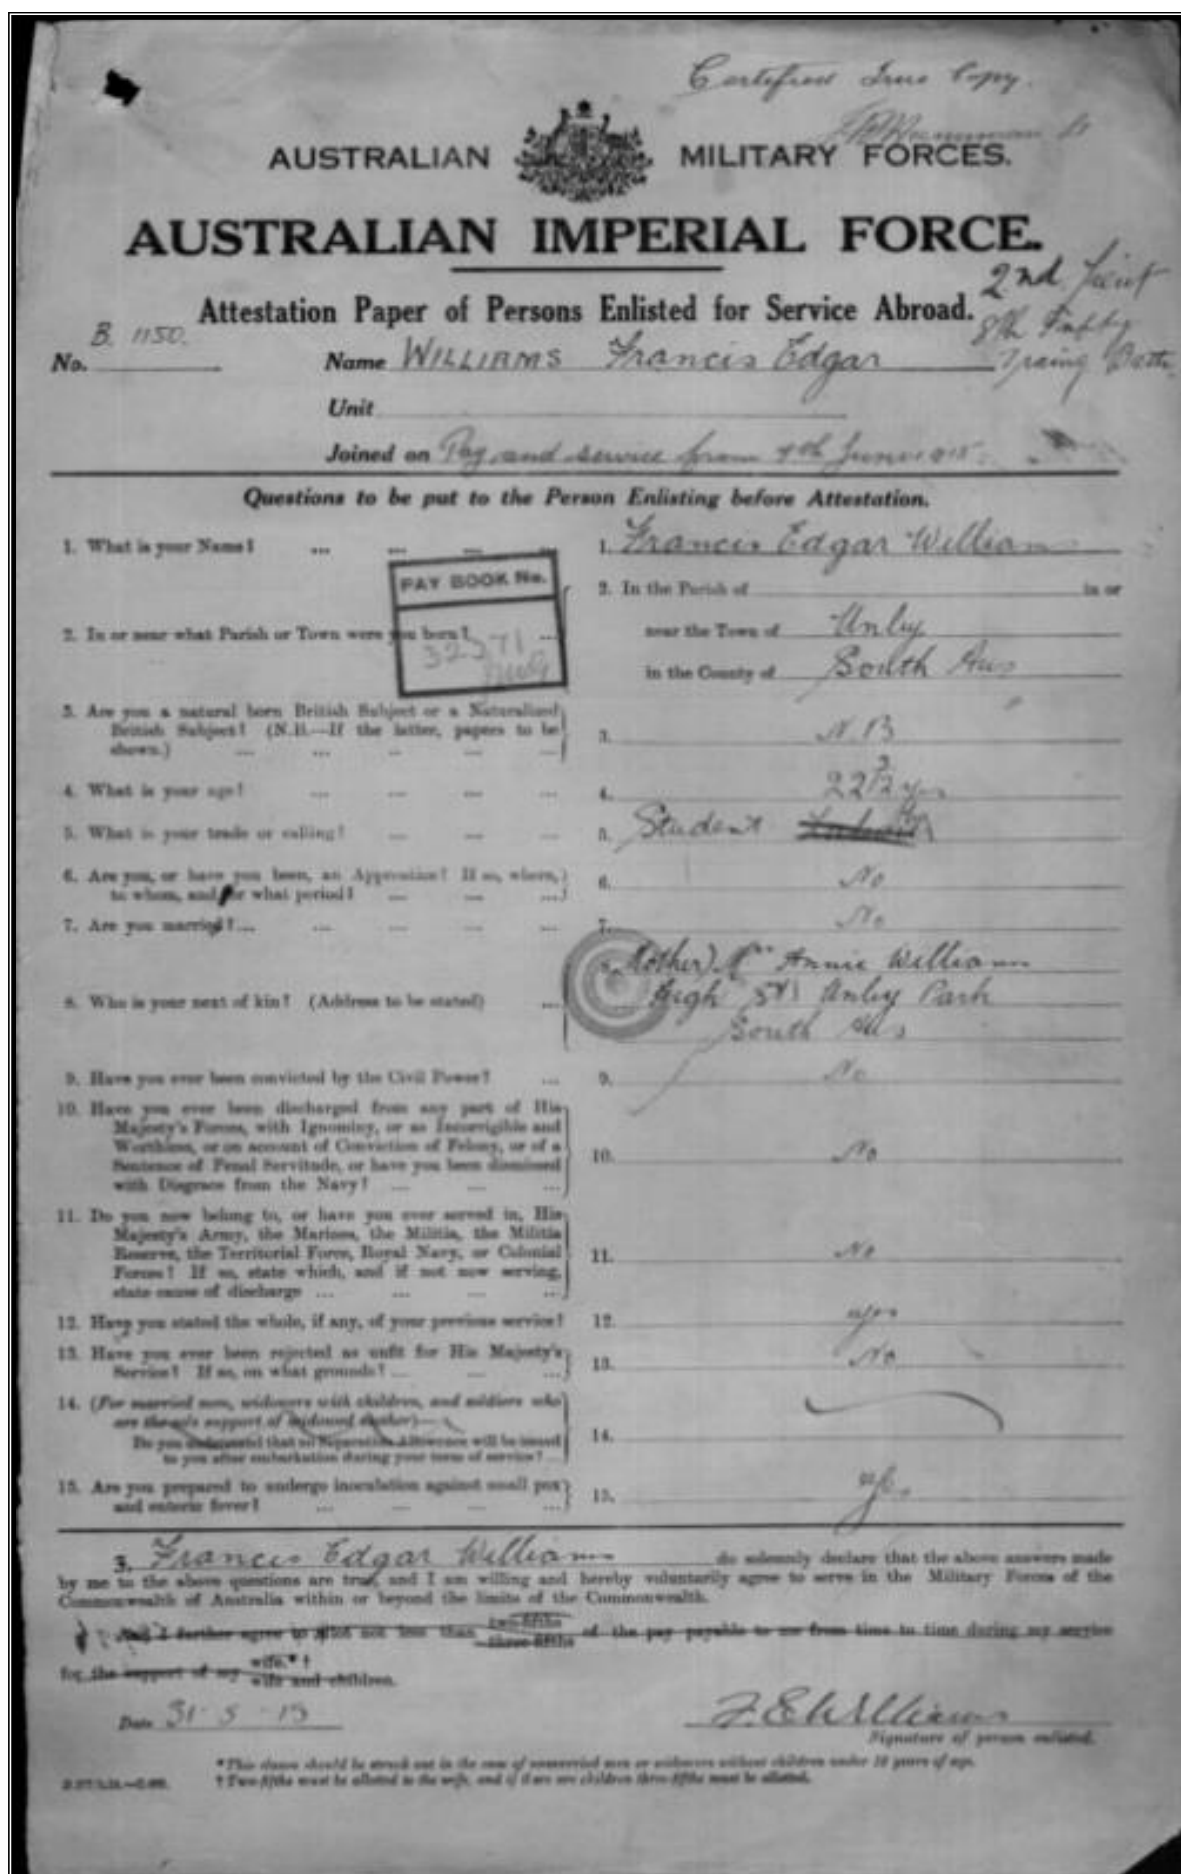 Certified True Copy.
AUSTRALIAN MILITARY FORCES.
AUSTRALIAN IMPERIAL FORCE.
2nd Lieut
Attestation Paper of Persons Enlisted for Service Abroad.
8th
B. 1150.
No. Name WILLIAMS Francis Edgar
Unit
Joined on Pay and service from 4th June 1915.
Questions to be put to the Person Enlisting before Attestation.
1. What is your Name? ... ... ... ... 1. Francis Edgar Williams
PAY BOOK No.
2. In the Parish of in or
2. In or near what Parish or Town were you born? ... near the Town of Unley
in the County of South Aus
3. Are you a natural born British Subject or a Naturalized
British Subject? (N.B.—If the latter, papers to be
shown.) ... ... ... ... ... 3. N.B
4. What is your age? ... ... ... ... 4. 22
5. What is your trade or calling? ... ... ... 5. Student
6. Are you, or have you been, an Apprentice? If so, where,
to whom, and for what period? ... ... ... 6. No
7. Are you married? ... ... ... ... ... 7. No
(Mother) Mrs Annie Williams
8. Who is your next of kin? (Address to be stated) ... High St Unley Park
South Aus
9. Have you ever been convicted by the Civil Power? ... 9. No
10. Have you ever been discharged from any part of His
Majesty's Forces, with Ignominy, or as Incorrigible and
Worthless, or on account of Conviction of Felony, or of a
Sentence of Penal Servitude, or have you been dismissed
with Disgrace from the Navy? ... ... ... 10. No
11. Do you now belong to, or have you ever served in, His
Majesty's Army, the Marines, the Militia, the Militia
Reserve, the Territorial Force, Royal Navy, or Colonial
Forces? If so, state which, and if not now serving,
state cause of discharge ... ... ... ... 11. No
12. Have you stated the whole, if any, of your previous service? 12. yes
13. Have you ever been rejected as unfit for His Majesty's
Service? If so, on what grounds? ... ... ... 13. No
14. (For married men, widowers with children, and soldiers who
are the sole support of widowed mother)—
Do you understand that no Separation Allowance will be issued
to you after embarkation during your term of service? ... 14.
15. Are you prepared to undergo inoculation against small pox
and enteric fever? ... ... ... 15. yes
3. Francis Edgar Williams do solemnly declare that the above answers made
by me to the above questions are true, and I am willing and hereby voluntarily agree to serve in the Military Forces of the
Commonwealth of Australia within or beyond the limits of the Commonwealth.
And I further agree to allot not less than two-fifths three-fifths of the pay payable to me from time to time during my service
for the support of my wife.*† wife and children.
Date 31-5-15 F. E. Williams
Signature of person enlisted.
*This clause should be struck out in the case of unmarried men or widowers without children under 18 years of age.
†Two-fifths must be allotted to the wife, and if there are children three-fifths must be allotted.